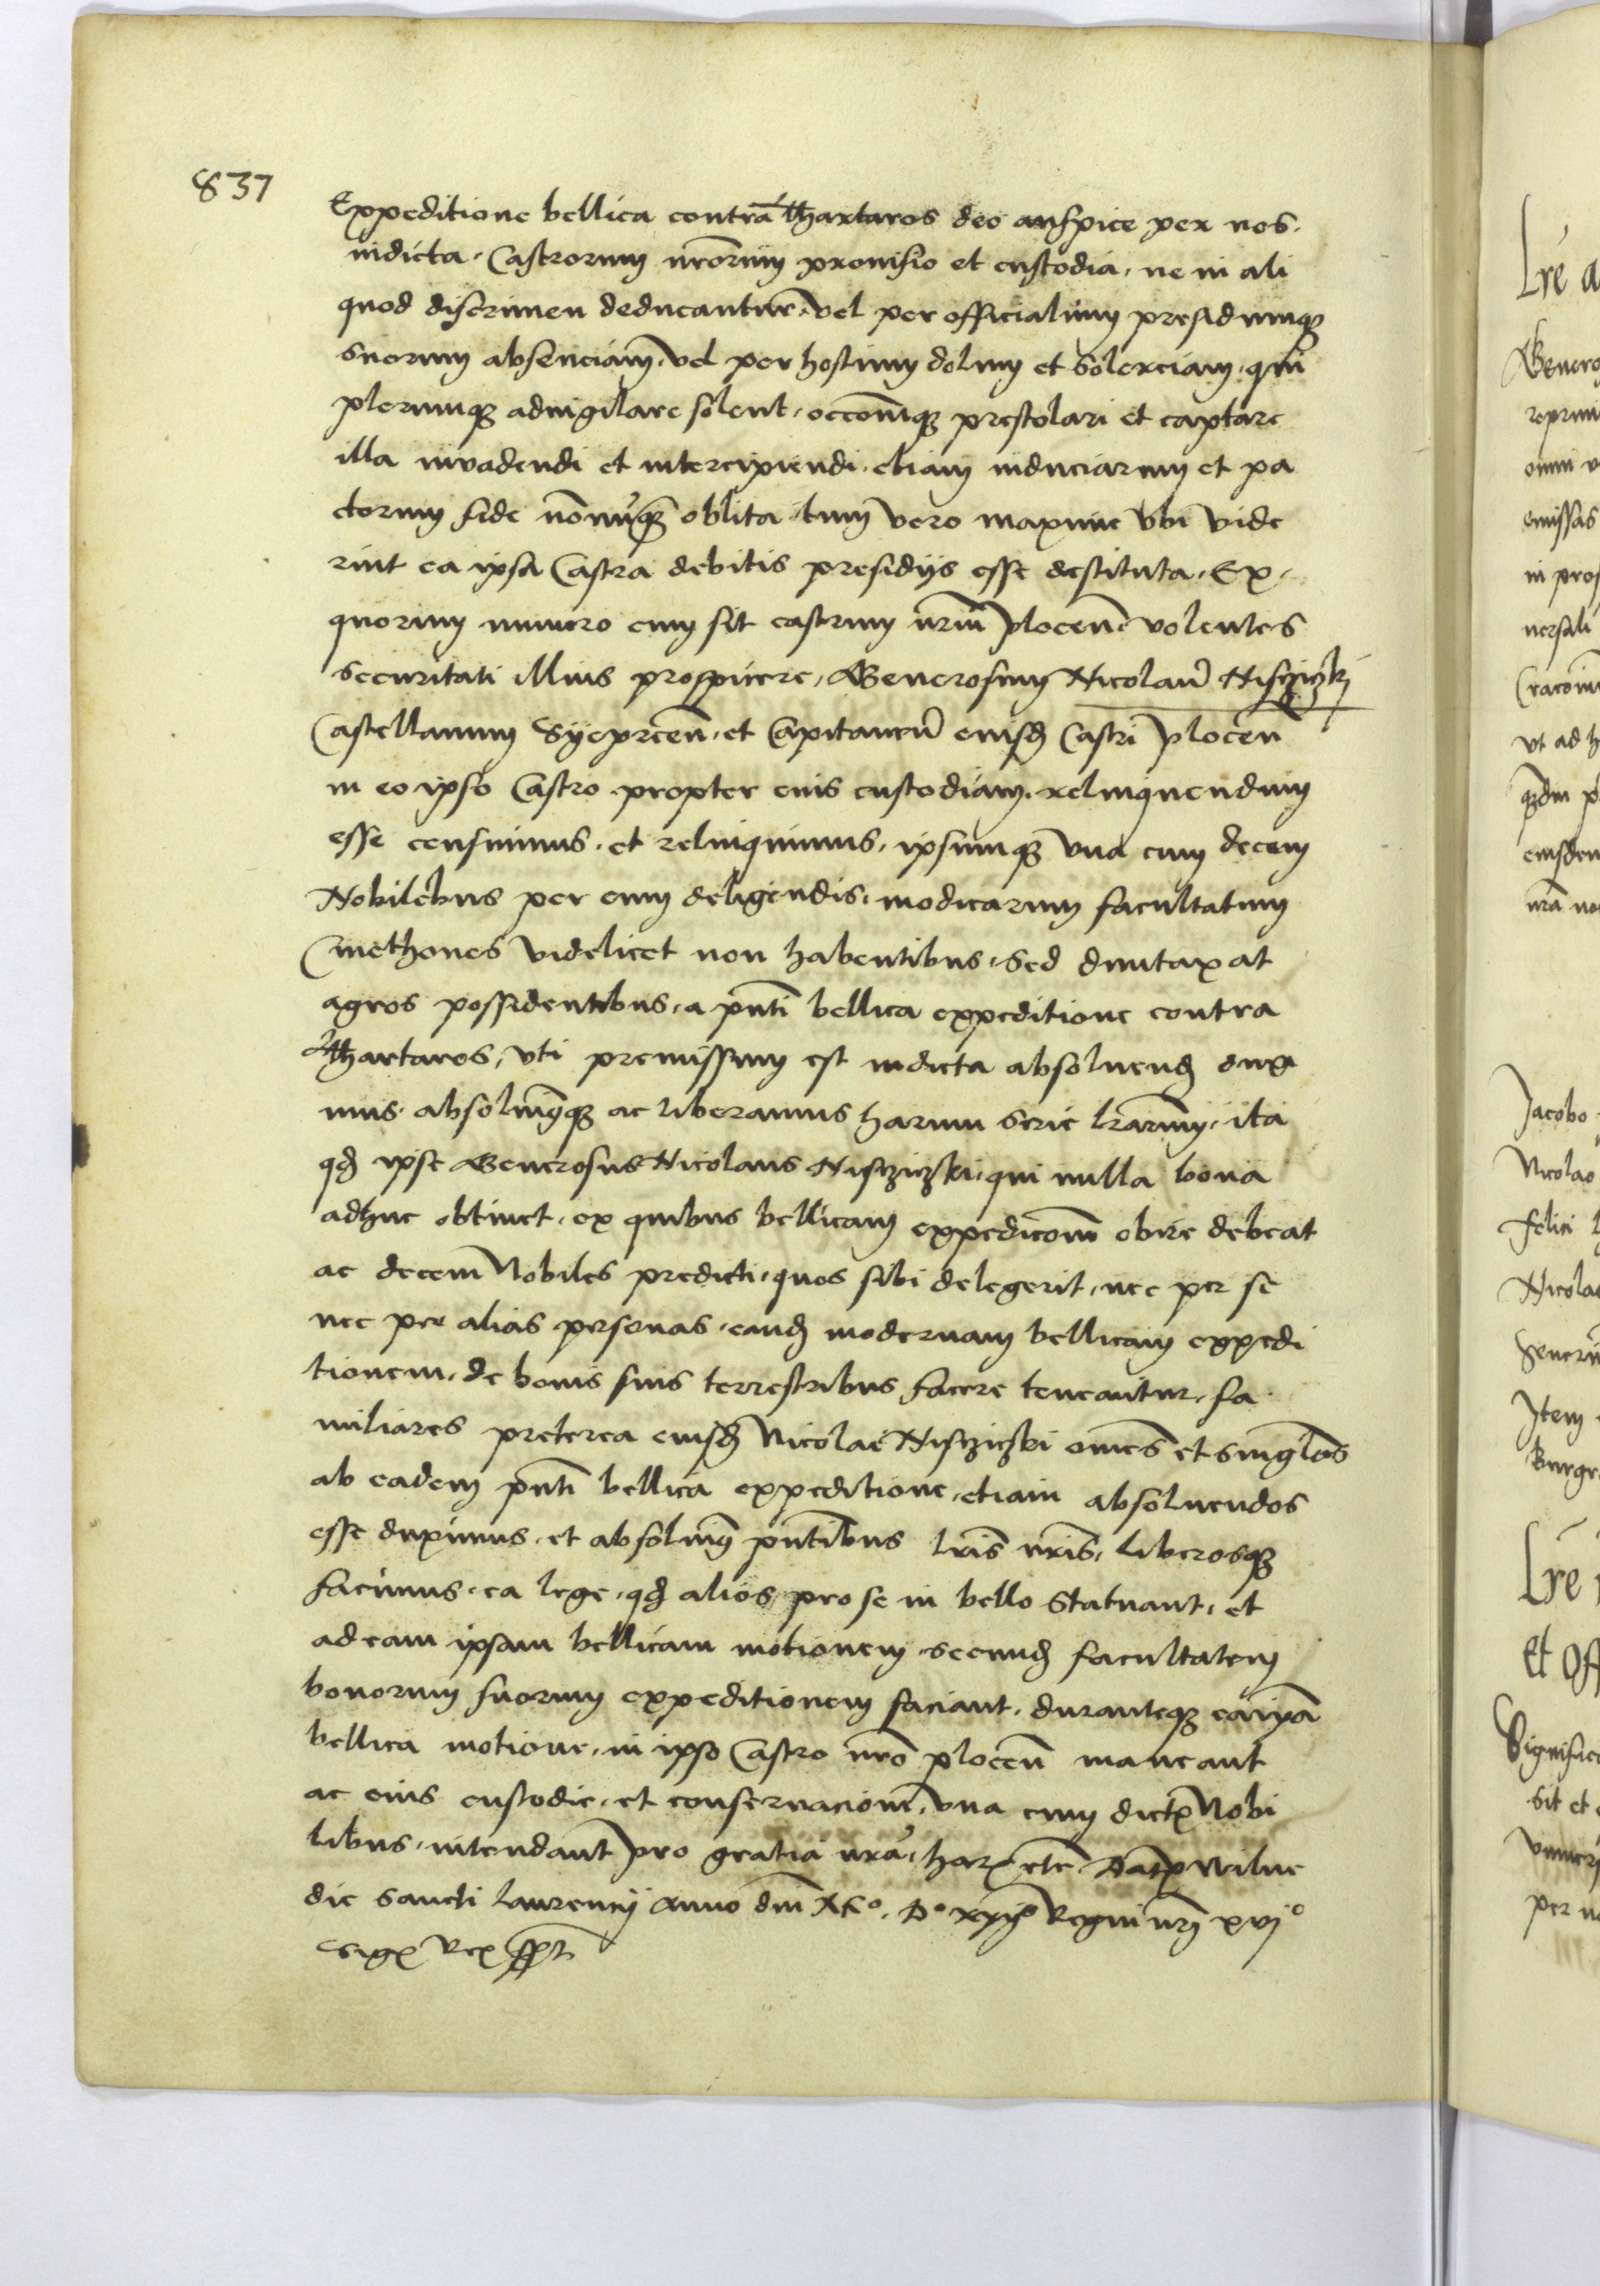 837
Expeditione bellica contra Thartaros deo auspice per nos
indicta, Castrorum nrõrum prouisio et custodia, ne in ali
quod discrimen deducantur, vel per officialium presidiumq3
suorum absenciam, vel per hostium dolum et solerciam, qui
plerumq3 aduigilare solent, occoneq3 prestolari et captare
illa inuadendi et intercipiendi, etiam induciarum et pa
ctorum fide nõnunq3 oblita, tum vero maxime vbi vide
rint ea ipsa Castra debitis presidijs esse destituta, Ex
quorum numero cum sit castrum nrm̃ plocen̄ volentes
securitati illius prospicere, Generosum Nicolaũ Niscziczki
Castellanum Syeprcen̄, et Capitaneũ eiusd Castri plocen̄
in eo ipso Castro propter eius custodiam, relinquendum
esse censuimus, et relinquimus, ipsumq3 vna cum decem
Nobilebus per eum deligendis, modicarum facultatum
Cmethones videlicet non habentibus, sed duntaxat
agros possidentibus, a pñti bellica expeditione contra
Thartaros, vti premissum est indicta absoluend duxi
mus, absoluimq3 ac liberamus harum serie lrarum, ita
qd ipse Generosus Nicolaus Niscziczki, qui nulla bona
adhuc obtinet, ex quibus bellicam expedicom̃ obire debeat
ac decem Nobiles predicti, quos sibi delegerit, nec per se
nec per alias personas, eand modernam bellicam expedi
tionem, de bonis suis terrestribus facere teneantur, fa
miliares preterea eiusd Nicolai Niscziczki om̃es et singl̃os
ab eadem pñti bellica expeditione, etiam absoluendos
esse duximus, et absoluim9 pñtibus lris̃ nris̃, liberosq3
facimus, ea lege, qd alios pro se in bello statuant, et
ad eam ipsam bellicam motionem secund facultatem
bonorum suorum expeditionem faciant, duranteq3 ea ipa̅
bellica motione, in ipso Castro nrõ plocen̄ maneant
ac eius custodie, et conseruacioni, vna cum dict Nobi
libus, intendant pro gratia nra, har etc Dat Wilne
die sancti laurencij Anno dm̃ M°. D° xxij° Regni nrj xvj°
Sigs Rex sst